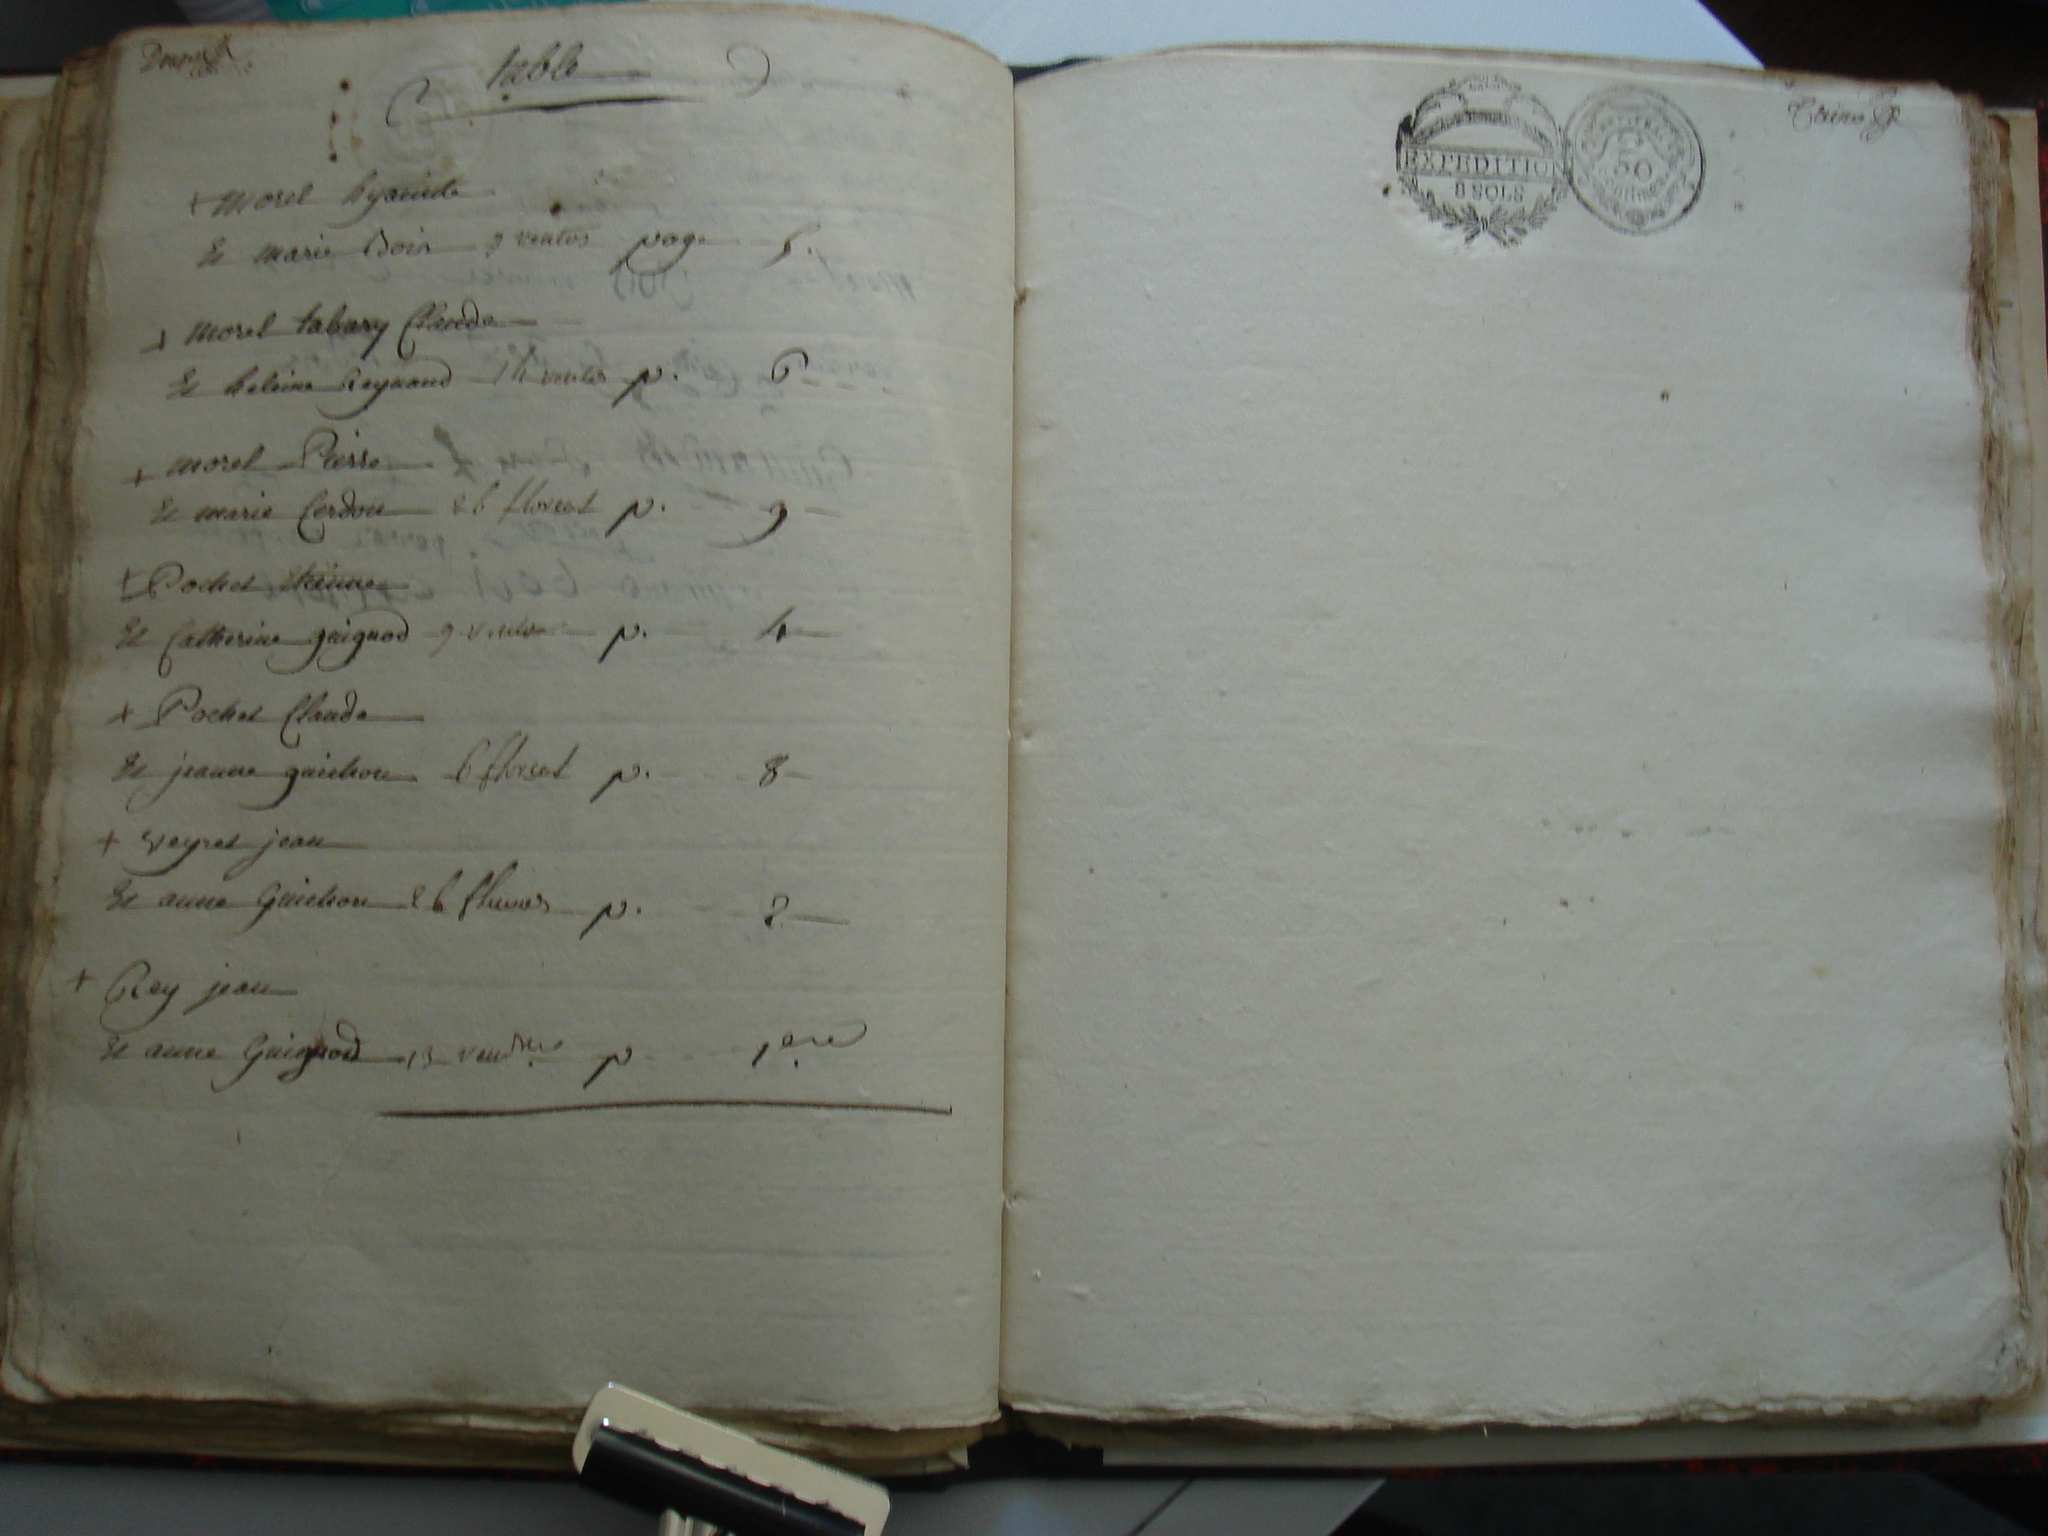 table
+ morel hyacinte
Et marie Boin 9 ventos page 5.
+ morel tabary Claude
Et heleine Reynaud 14 ventos p. 6
+ morel Pierre
Et marie Cerdon 26 floreal p. 9
+ Pochet Etienne
Et Catherine guignod 9 ventos p. 4
+ Pochet Claude
Et jeanne guichon 6 floreal p. 8
+ veyret jean
Et anne Guichon 26 p. 2
+ Rey jean
Et anne Guignod 13 p 1ere
EXPEDITION
8 SOLS
50